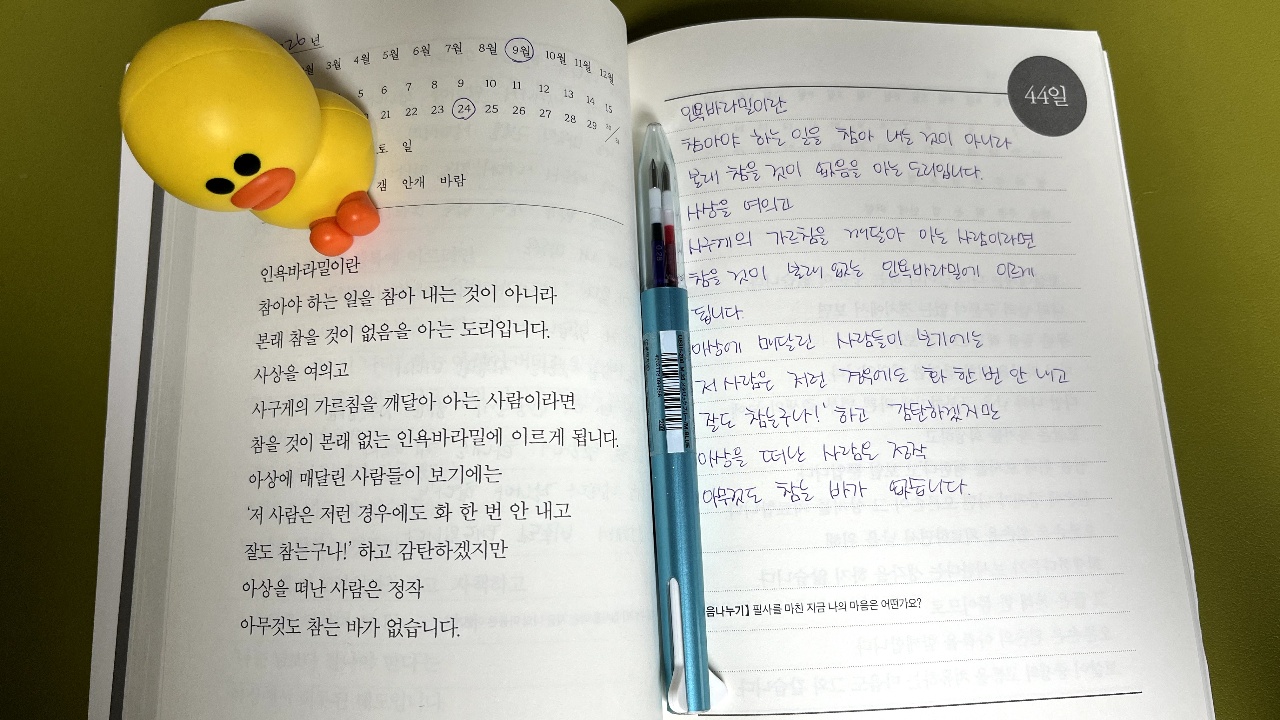 26년
3월 4월 5월 6월 7월 8월 9월 10월 11월 12월
5 6 7 8 9 10 11 12 13 14 15
21 22 23 24 25 26 27 28 29 30/31
토 일
갬 안개 바람
인욕바라밀이란
참아야 하는 일을 참아 내는 것이 아니라
본래 참을 것이 없음을 아는 도리입니다.
사상을 여의고
사구게의 가르침을 깨달아 아는 사람이라면
참을 것이 본래 없는 인욕바라밀에 이르게 됩니다.
아상에 매달린 사람들이 보기에는
‘저 사람은 저런 경우에도 화 한 번 안 내고
잘도 참는구나!’ 하고 감탄하겠지만
아상을 떠난 사람은 정작
아무것도 참는 바가 없습니다.
44일
인욕바라밀이란
참아야 하는 일을 참아 내는 것이 아니라
본래 참을 것이 없음을 아는 도리입니다.
사상을 여의고
사구게의 가르침을 깨달아 아는 사람이라면
참을 것이 본래 없는 인욕바라밀에 이르게
됩니다.
아상에 매달린 사람들이 보기에는
저 사람은 저런 경우에도 화 한 번 안 내고
잘도 참는구나!’ 하고 감탄하겠지만
아상을 떠난 사람은 정작
아무것도 참는 바가 없습니다.
음나누기] 필사를 마친 지금 나의 마음은 어떤가요?